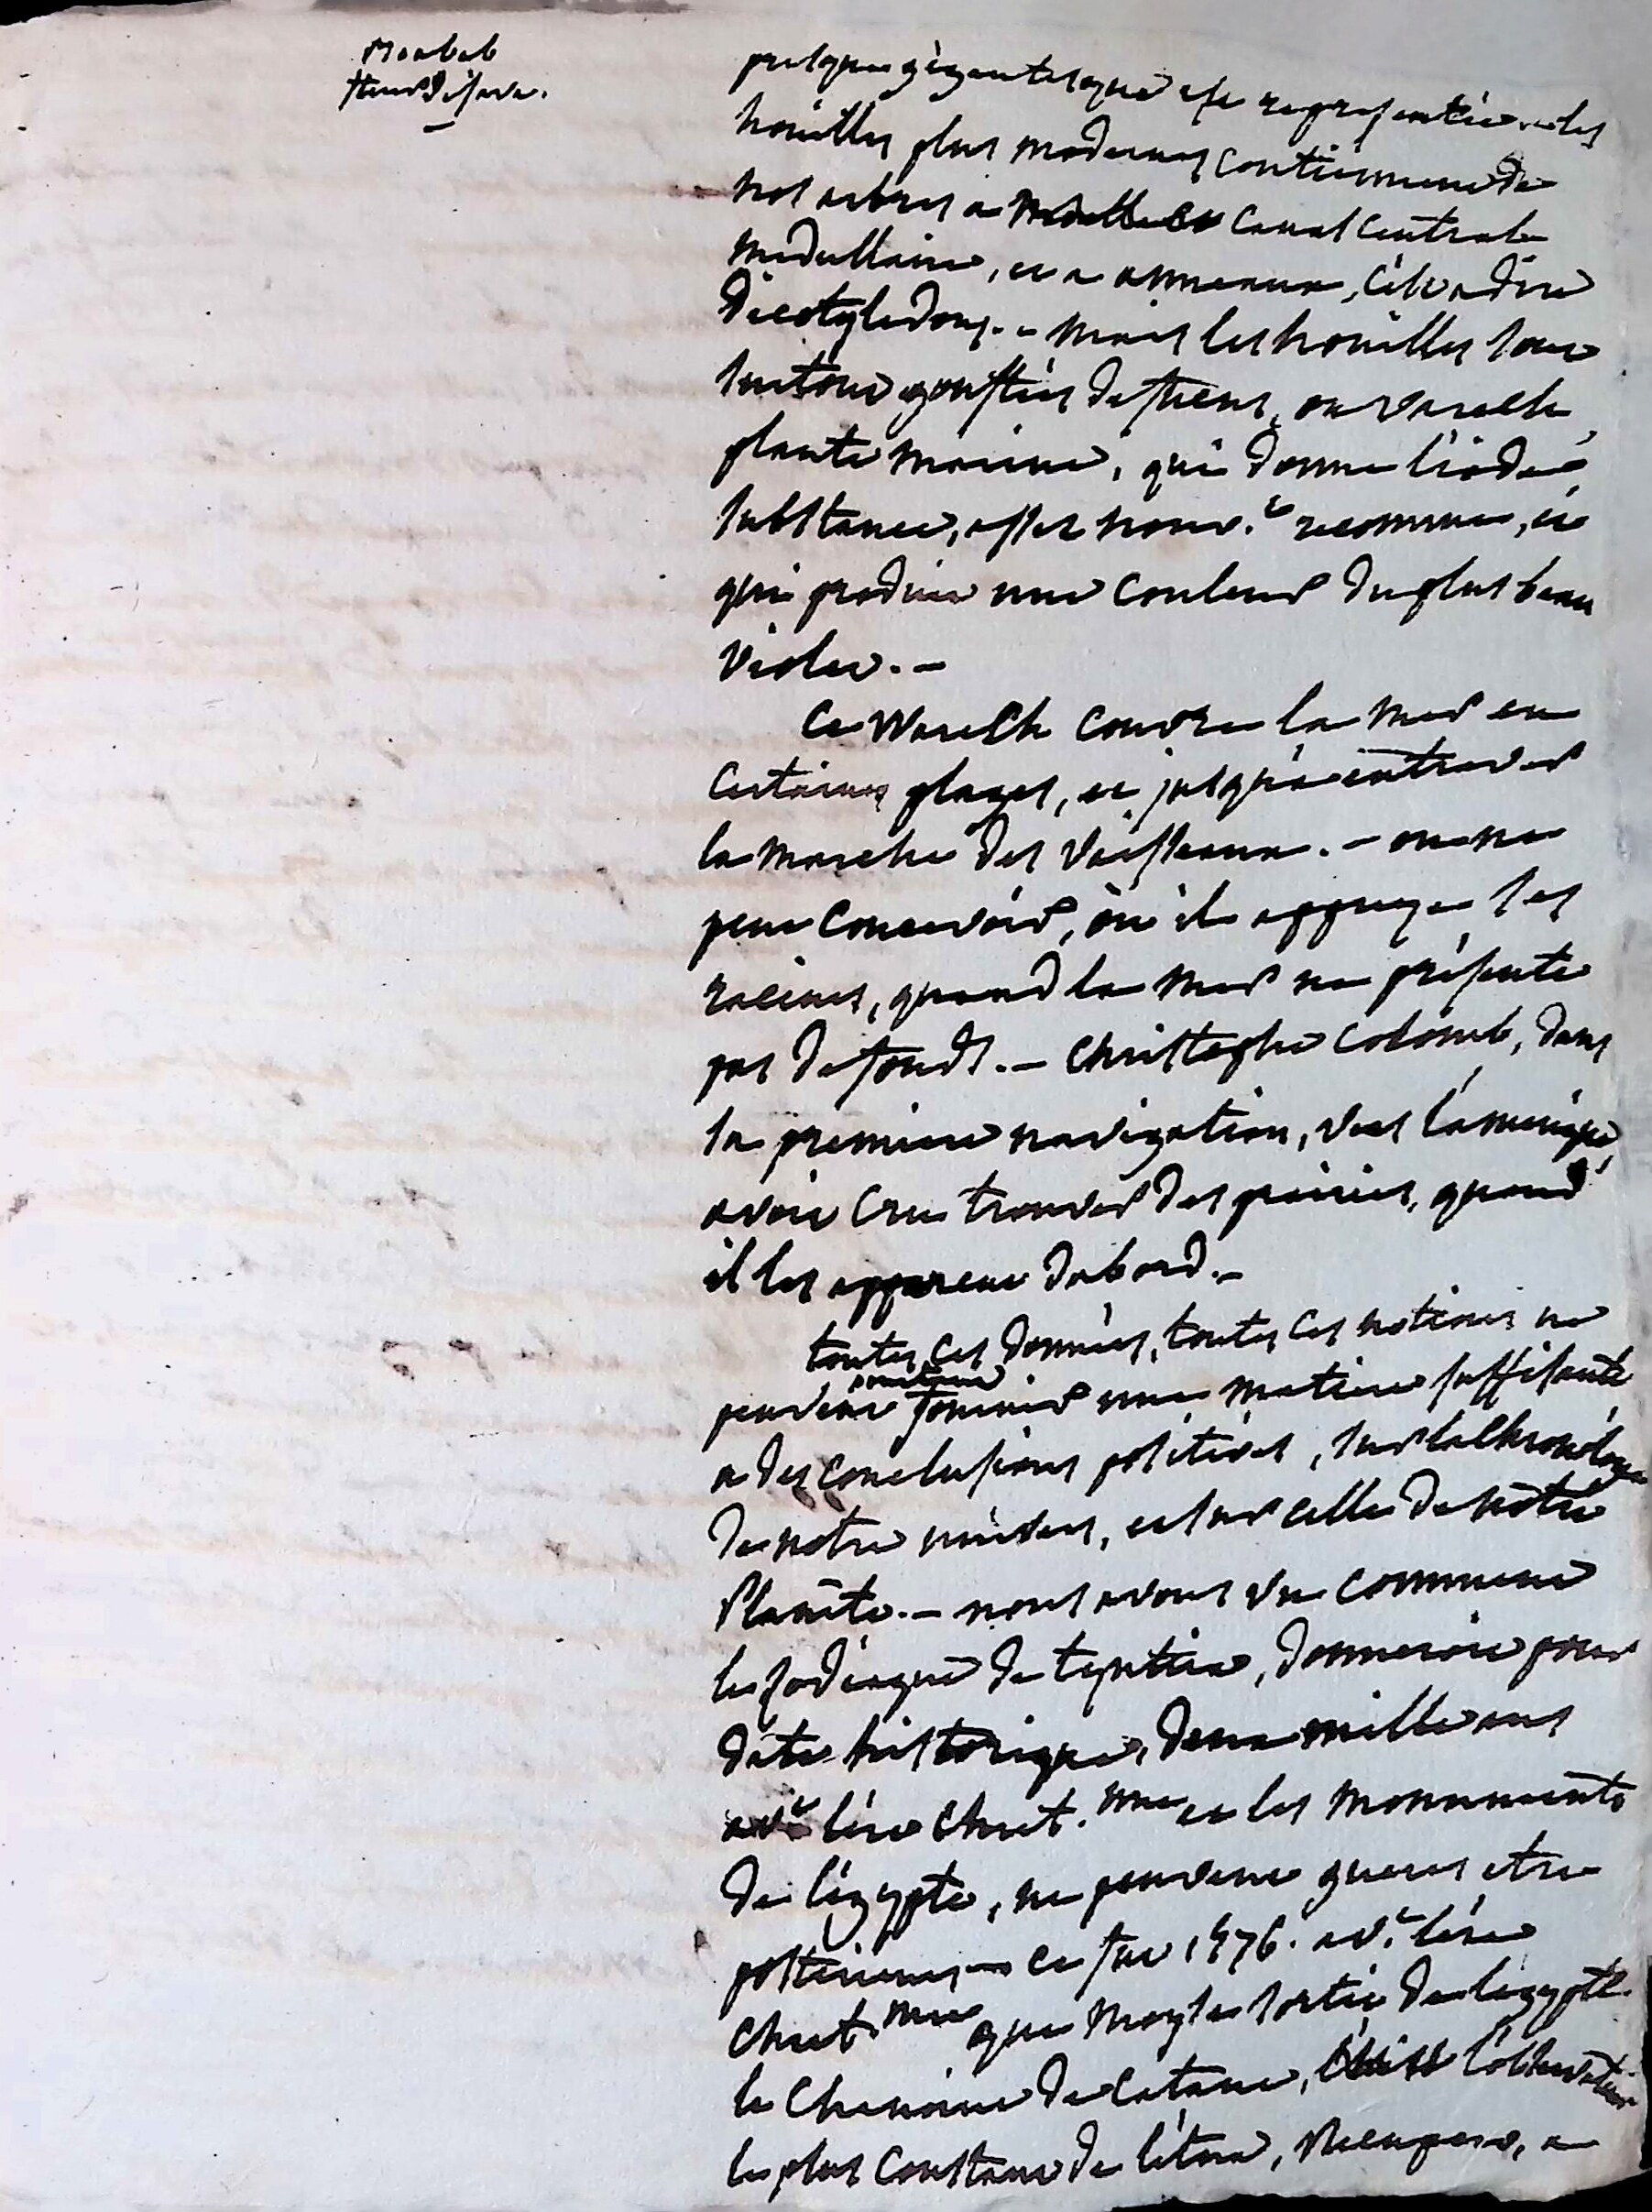 presque gigantesque est representée. les
houilles plus modernes contiennent de
nos arbres a canal central
medullaire, et a anneaux, c'est a dire
dicotyledons. - mais les houilles sont
surtout de fucus, ou varech,
plante marine, qui donne l'iode,
substance, assez nouv.t reconnue, et
qui produit une couleur du plus beau
violet. -
Ce Warech couvre la mer en
certaines plages, et jusqu'a entraver
la marche des vaisseaux. - on ne
peut concevoir, où il appuye ses
racines, quand la mer ne présente
pas de fonds. - Christophe Colomb, dans
sa premiere navigation, vers l'amérique,
avoit cru trouver des prairies, quand
il les apperçut dabord. -
toutes ces données, toutes ces notions ne
peuvent fournir une matiere suffisante
a des conclusions positives, sur la chronologie
de notre univers, et sur celle de notre
Planète. - nous avons vu comment
le zodiaque de tentira, donneroit pour
date historique, deux mille ans
av.t l'ère chret.nne et les monuments
de l'égypte, ne peuvent gueres etre
posterieurs - ce fut 1476. av.t l'ère
chret.nne que Moyse sortit de l'egypte.
le Chanoine de Catane, l'observateur
le plus constant de l'étna, Recupero, a